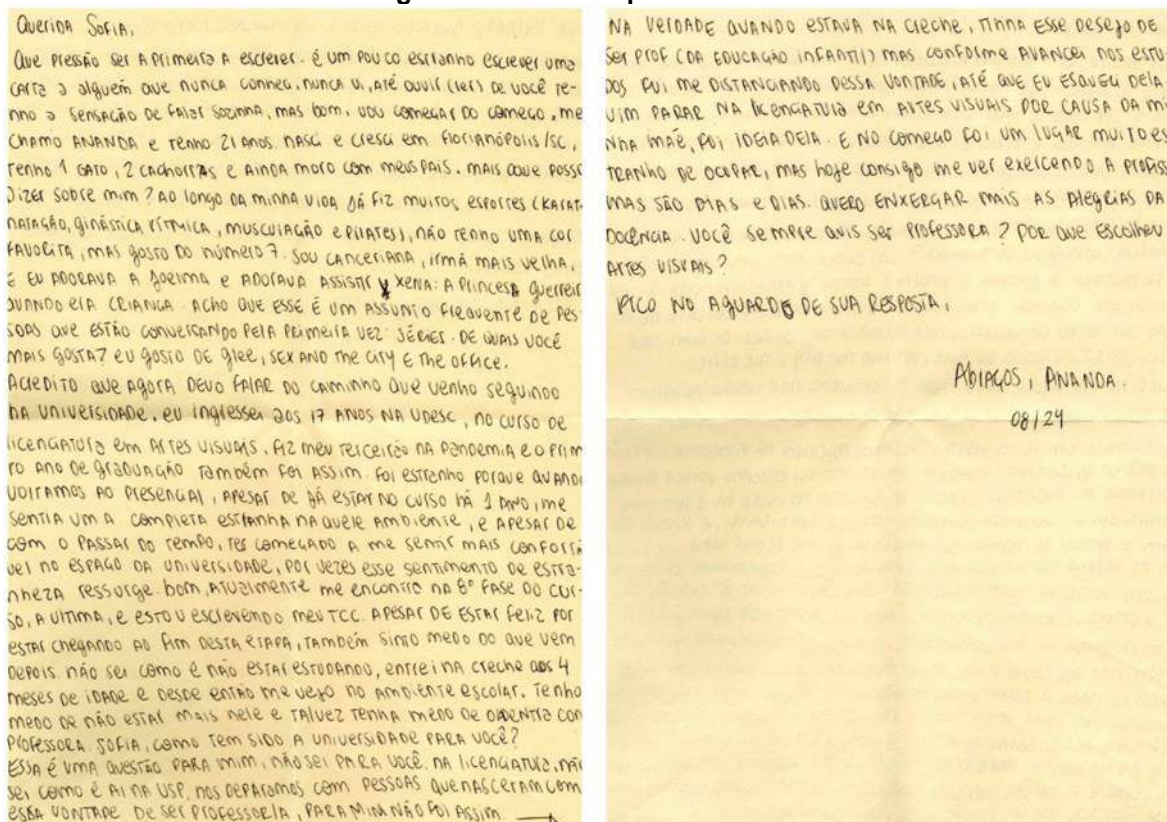 Querida Sofia,
Que pressão ser a primeira a escrever. é um pouco estranho escrever uma
carta a alguém que nunca conheci, nunca vi, até ouvir (ler) de você te-
nho a sensação de falar sozinha, mas bom, vou começar do começo, me
chamo Ananda e tenho 21 anos. nasci e cresci em Florianópolis/SC,
tenho 1 gato, 2 cachorras e ainda moro com meus pais. mais o que posso
dizer sobre mim? Ao longo da minha vida já fiz muitos esportes (karat
natação, ginástica rítmica, musculação e pilates), não tenho uma cor
favorita, mas gosto do número 7. sou canceriana, irmã mais velha,
e eu adorava a Joelma e adorava assistir Xena: a princesa guerreir
quando era criança. Acho que esse é um assunto frequente de pes-
soas que estão conversando pela primeira vez séries. de quais você
mais gosta? eu gosto de glee, sex and the city e the office.
Acredito que agora devo falar do caminho que venho seguindo
na universidade. eu ingressei aos 17 anos na UDESC, no curso de
licenciatura em Artes visuais. fiz meu terceirão na pandemia e o prim
ro ano de graduação também foi assim. foi estranho porque quando
voltamos ao presencial, apesar de já estar no curso há 1 ano, me
sentia uma completa estranha naquele ambiente, e apesar de
com o passar do tempo, ter começado a me sentir mais confortá
vel no espaço da universidade, por vezes esse sentimento de estra-
nheza ressurge. bom, atualmente me encontro na 8ª fase do cur-
so, a última, e estou escrevendo meu TCC. Apesar de estar feliz por
estar chegando ao fim desta etapa, também sinto medo do que vem
depois. não sei como é não estar estudando, entrei na creche aos 4
meses de idade e desde então me vejo no ambiente escolar. tenho
medo de não estar mais nele e talvez tenha medo de adentrá com
professora. Sofia, como tem sido a universidade para você?
Essa é uma questão para mim, não sei para você. na licenciatura, não
sei como é aí na USP, nos deparamos com pessoas que nasceram com
essa vontade de ser professor/a, para mim não foi assim. →
na verdade quando estava na creche, tinha esse desejo de
ser prof (da educação infantil) mas conforme avancei nos estu-
dos fui me distanciando dessa vontade, até que eu esqueci dela.
vim parar na licenciatura em artes visuais por causa da mi
nha mãe, foi ideia dela. E no começo foi um lugar muito es
tranho de ocupar, mas hoje consigo me ver exercendo a profiss
mas são dias e dias. quero enxergar mais as alegrias da
docência. Você sempre quis ser professora? por que escolheu
artes visuais?
Fico no aguardo de sua resposta,
Abraços, Ananda.
08/24